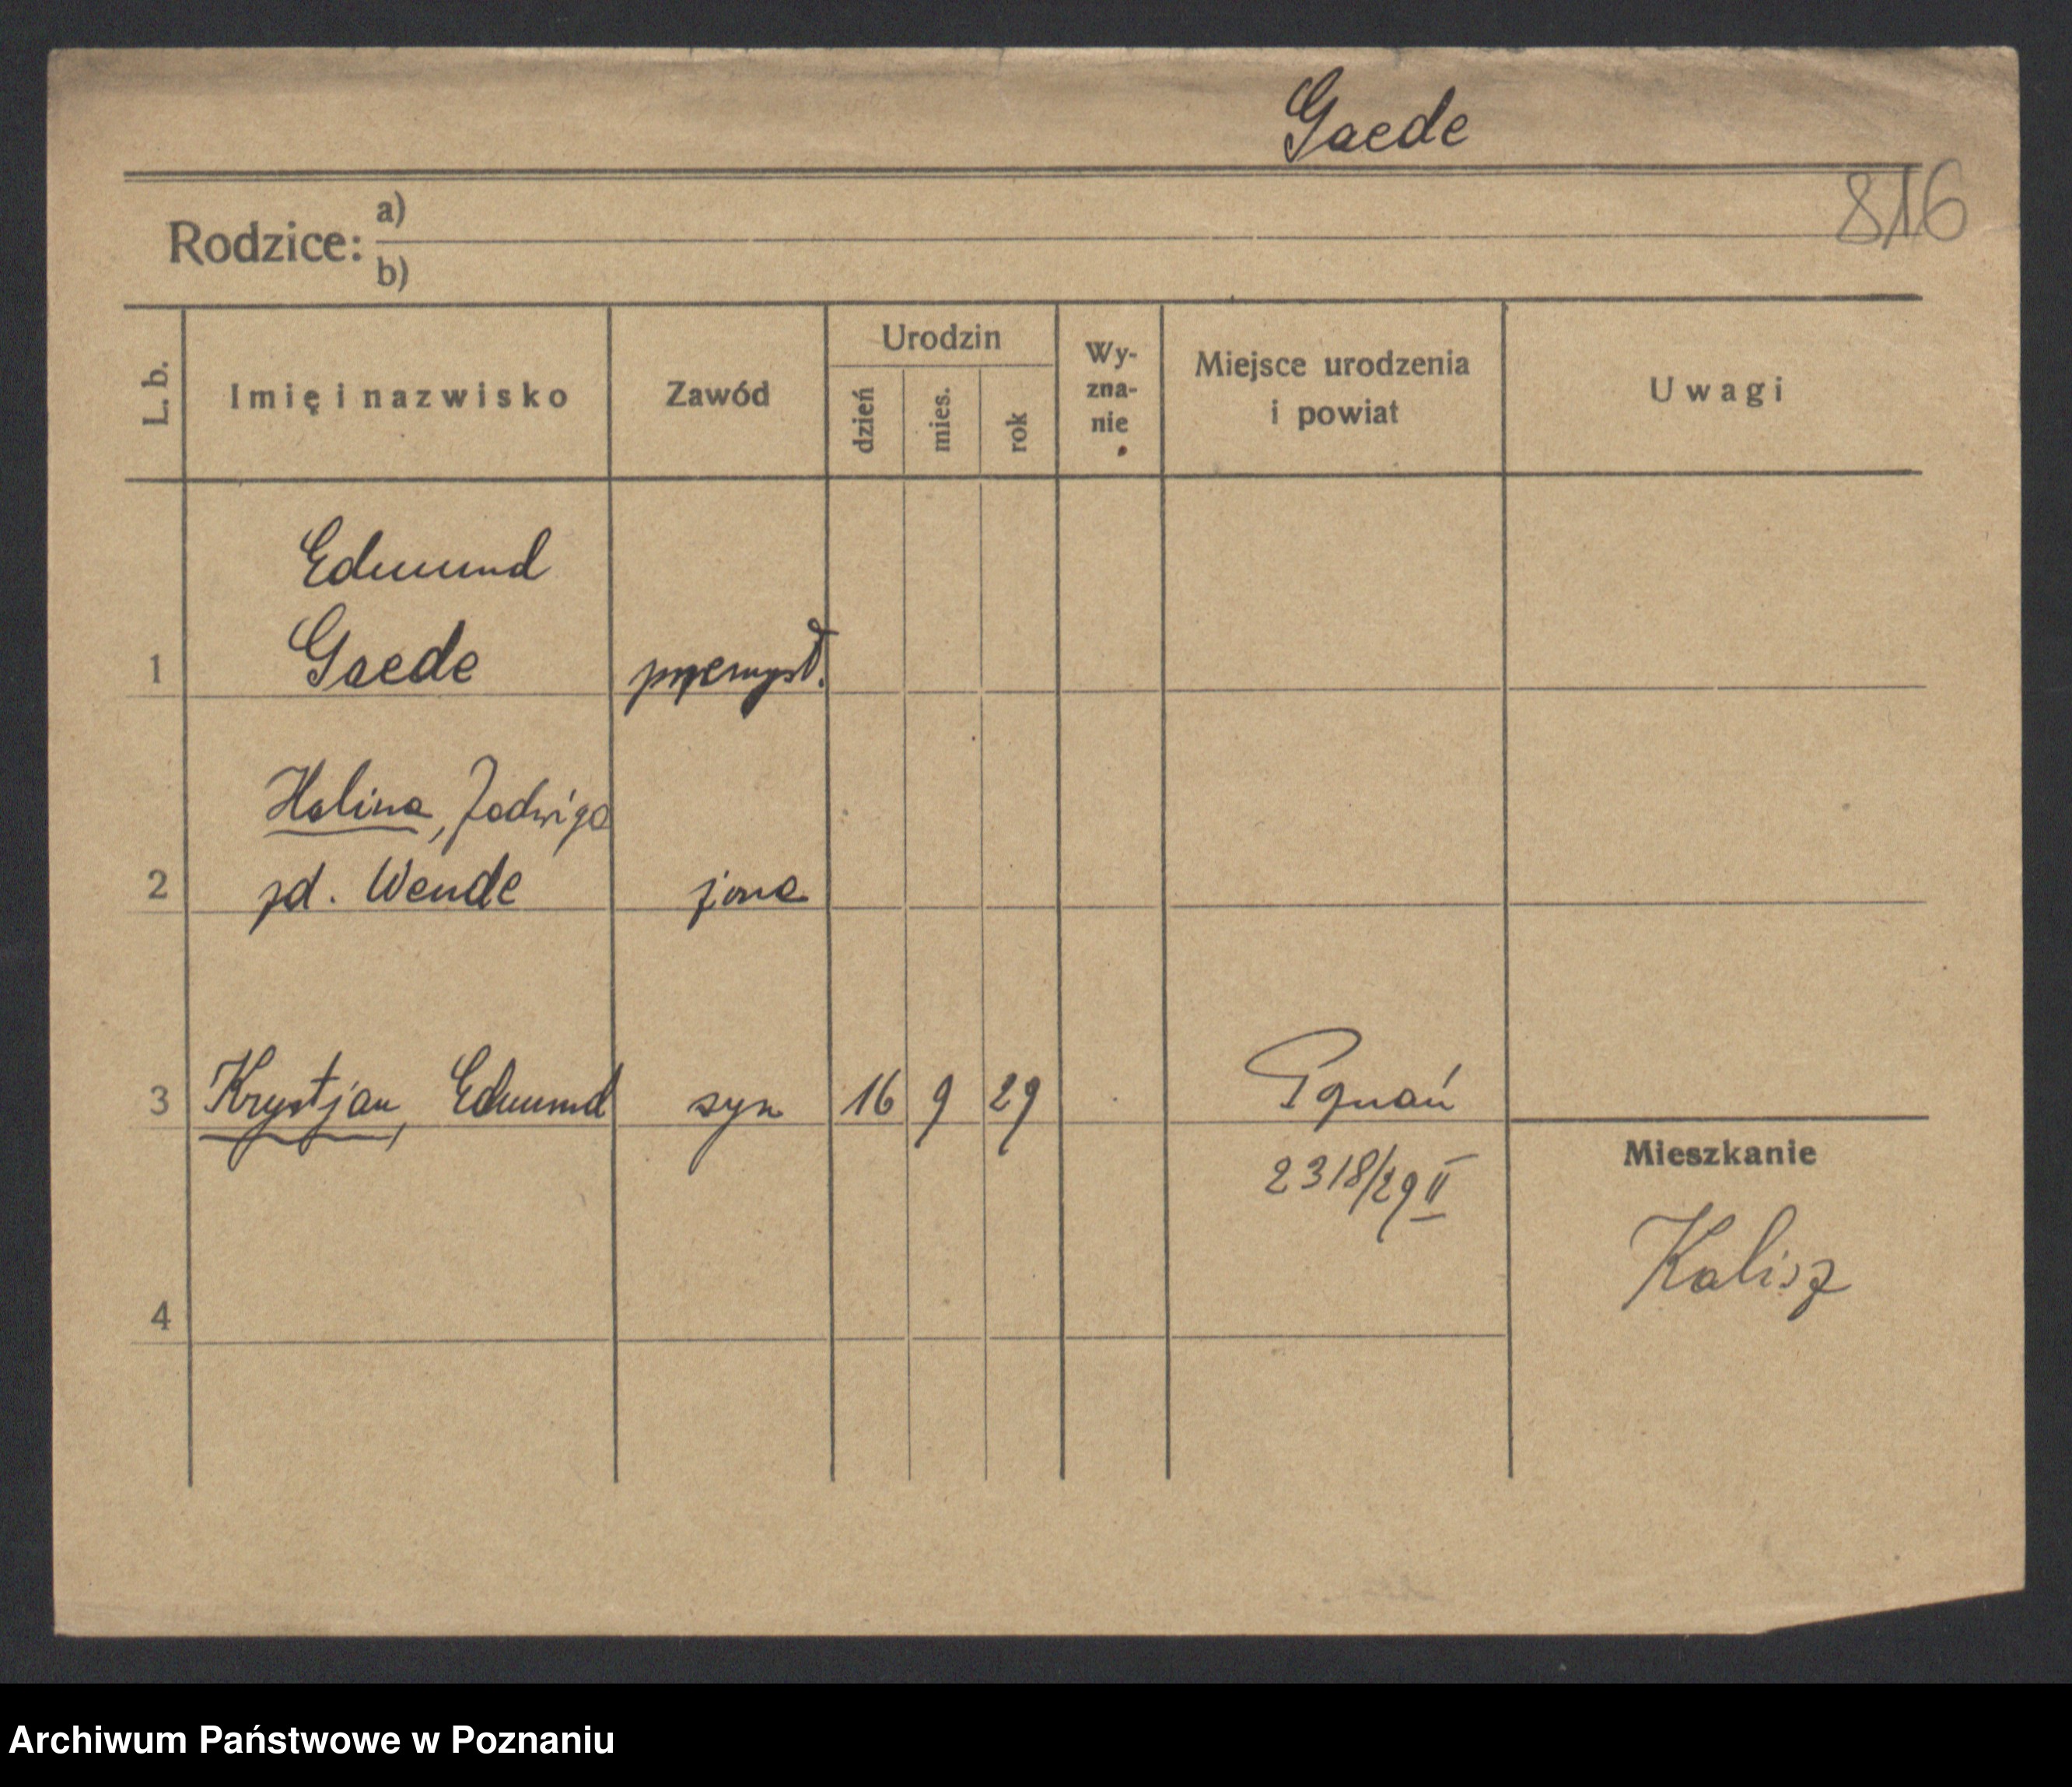 Gaede
816
Rodzice: a)
b)
L. b.
Imię i nazwisko
Zawód
Urodzin
dzień
mies.
rok
Wy-
zna-
nie
Miejsce urodzenia
i powiat
Uwagi
Edmund
1 Gaede przemysł.
Halina, Jadwiga
2 zd. Wende żona
3 Krystjan, Edmund syn 16 9 29 Poznań
2318/29 II
Mieszkanie
Kalisz
4
Archiwum Państwowe w Poznaniu